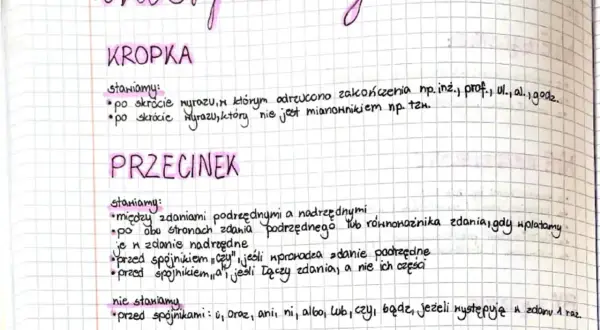 KROPKA
stawiamy:
• po skrócie wyrazu, w którym odrzucono zakończenia np. inż., prof., ul., al., godz.
• po skrócie wyrazu, który nie jest mianownikiem np. tzw.
PRZECINEK
stawiamy:
• między zdaniami podrzędnymi a nadrzędnymi
• po obu stronach zdania podrzędnego lub równoważnika zdania, gdy wplatamy
je w zdanie nadrzędne
• przed spójnikiem "czy", jeśli wprowadza zdanie podrzędne
• przed spójnikiem "a", jeśli łączy zdania, a nie ich części
nie stawiamy
• przed spójnikami: i, oraz, ani, ni, albo, lub, czy, bądź, jeżeli występują w zdaniu 1 raz